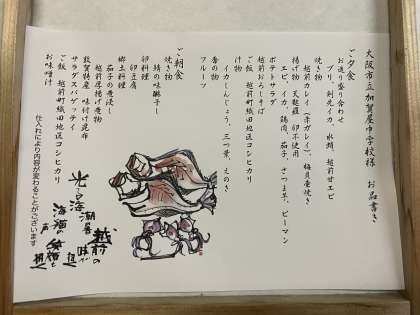 大阪市立加賀屋中学校様　お品書き
ご夕食
お造り盛り合わせ
ブリ、剣先イカ、水蛸、越前甘エビ
焼き物
越前カレイ（赤ガレイ）、梅貝壷焼き
揚げ物　天麩羅　卵不使用
エビ、イカ、鶏肉、茄子、さつま芋、ピーマン
ポテトサラダ
越前おろしそば
汁物
イカしんじょう、三つ葉、えのき
ご飯　越前町織田地区コシヒカリ
香の物
フルーツ
ご朝食
焼き物
鯖の味醂干し
卵料理
卵豆腐
郷土料理
茄子の煮浸し
越前厚揚げ煮物
敦賀特産　味付け昆布
サラダスパゲッティ
ご飯　越前町織田地区コシヒカリ
お味噌汁
仕入れにより内容が変わることがございます
越前の
味が
潮届
光る海